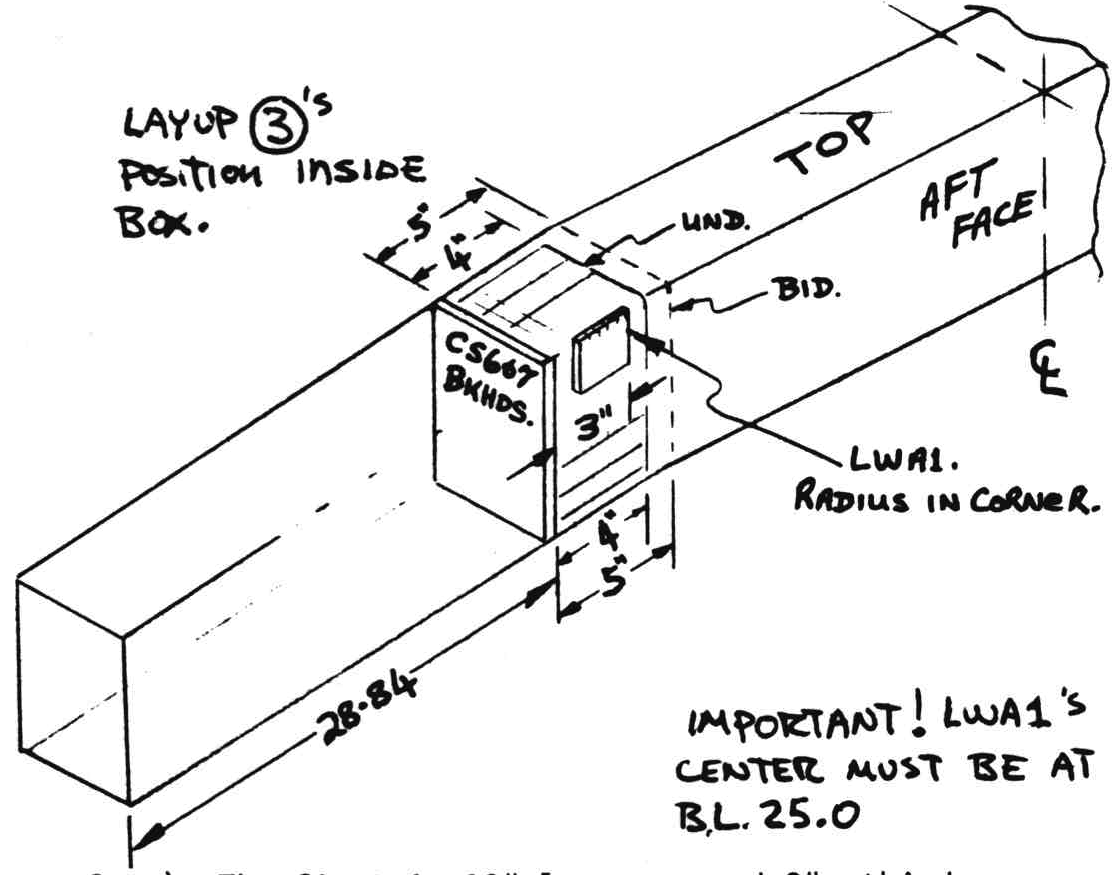 LAYUP 3's
POSITION INSIDE
BOX.
TOP
AFT
FACE
5"
4"
UND.
BID.
CS667
BKHDS.
3"
℄
LWA1.
RADIUS IN CORNER.
4"
5"
28.84
IMPORTANT! LWA1's
CENTER MUST BE AT
B.L. 25.0